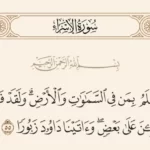 سُورَةُ الإِسْرَاءِ
بِسْمِ اللَّهِ الرَّحْمَٰنِ الرَّحِيمِ
بِمَن فِي السَّمَاوَاتِ وَالْأَرْضِ ۗ وَلَقَدْ
عَلَىٰ بَعْضٍ ۖ وَآتَيْنَا دَاوُودَ زَبُورًا ٥٥